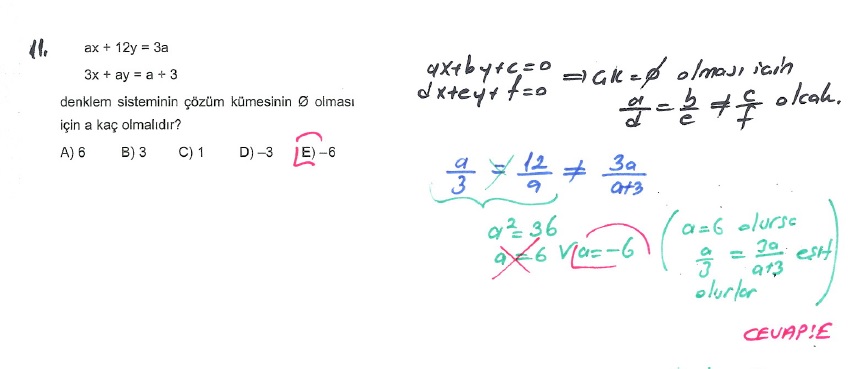 11.
ax + 12y = 3a
3x + ay = a + 3
denklem sisteminin çözüm kümesinin Ø olması
için a kaç olmalıdır?
A) 6 B) 3 C) 1 D) –3 E) –6
ax+by+c=0
dx+ey+f=0
⇒ ÇK=Ø olması için
a/d = b/e ≠ c/f olcak.
a/3 = 12/a ≠ 3a/a+3
a²=36
a=6 V a=-6
(a=6 olursa
a/3 = 3a/a+3 eşit
olurlar)
CEVAP:E